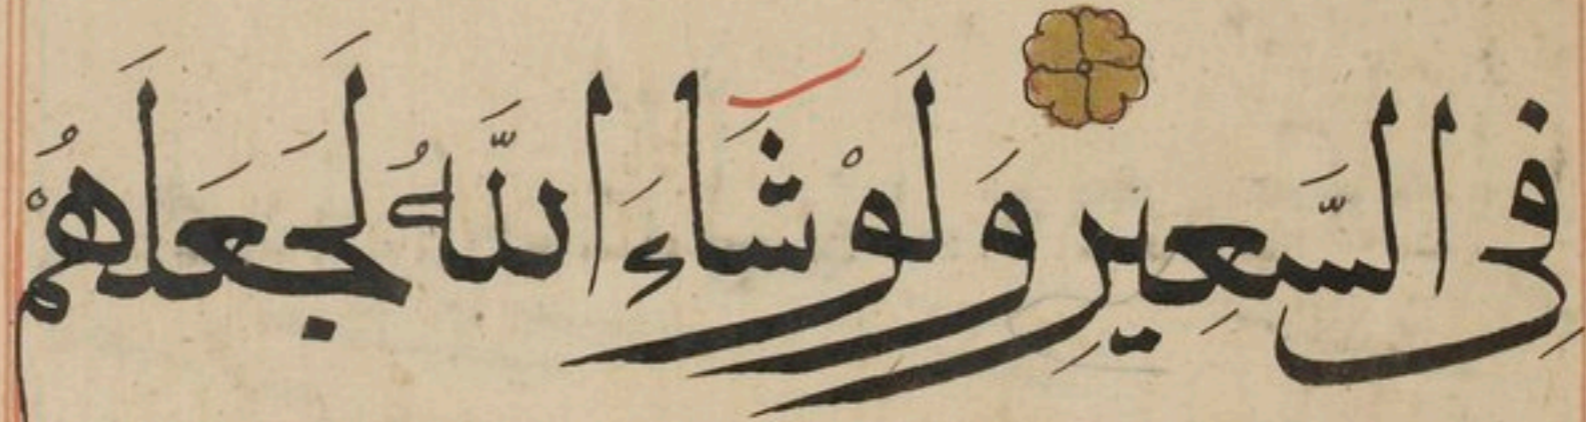 فِى السَّعِيرِ وَلَوْ شَاءَ اللَّهُ لَجَعَلَهُمْ